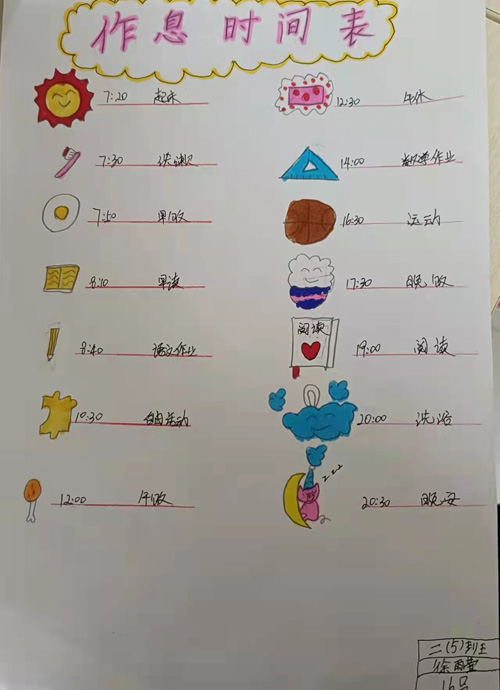 作息时间表
7:20 起床
7:30 洗漱
7:50 早饭
8:10 早读
8:40 语文作业
10:30 自由活动
12:00 午饭
12:30 午休
14:00 数学作业
16:30 运动
17:30 晚饭
阅读
19:00 阅读
20:00 洗浴
zzz
20:30 晚安
二(5)班
16号